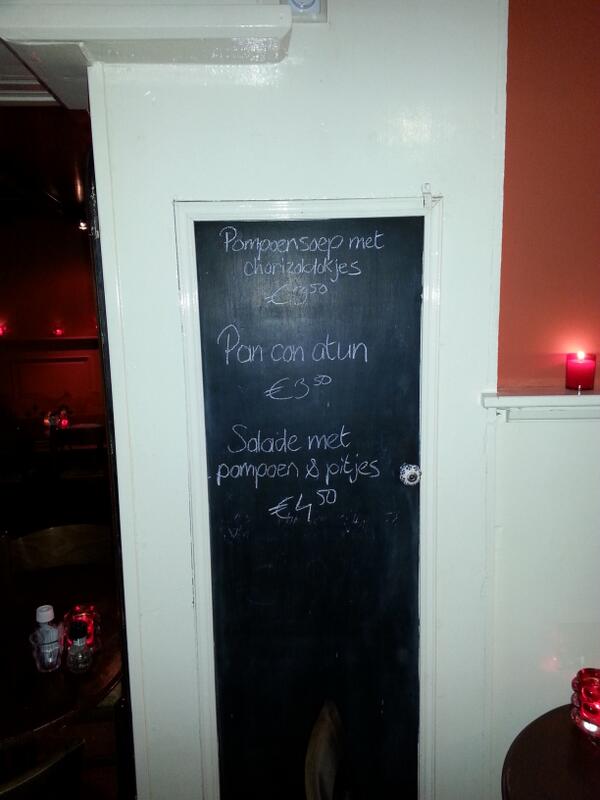 Pompoensoep met
chorizoblokjes
Pan con atun
€3,50
Salade met
pompoen & pitjes
€4,50